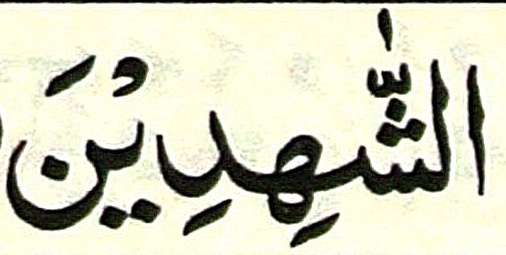 الشّٰهِدِیْنَ